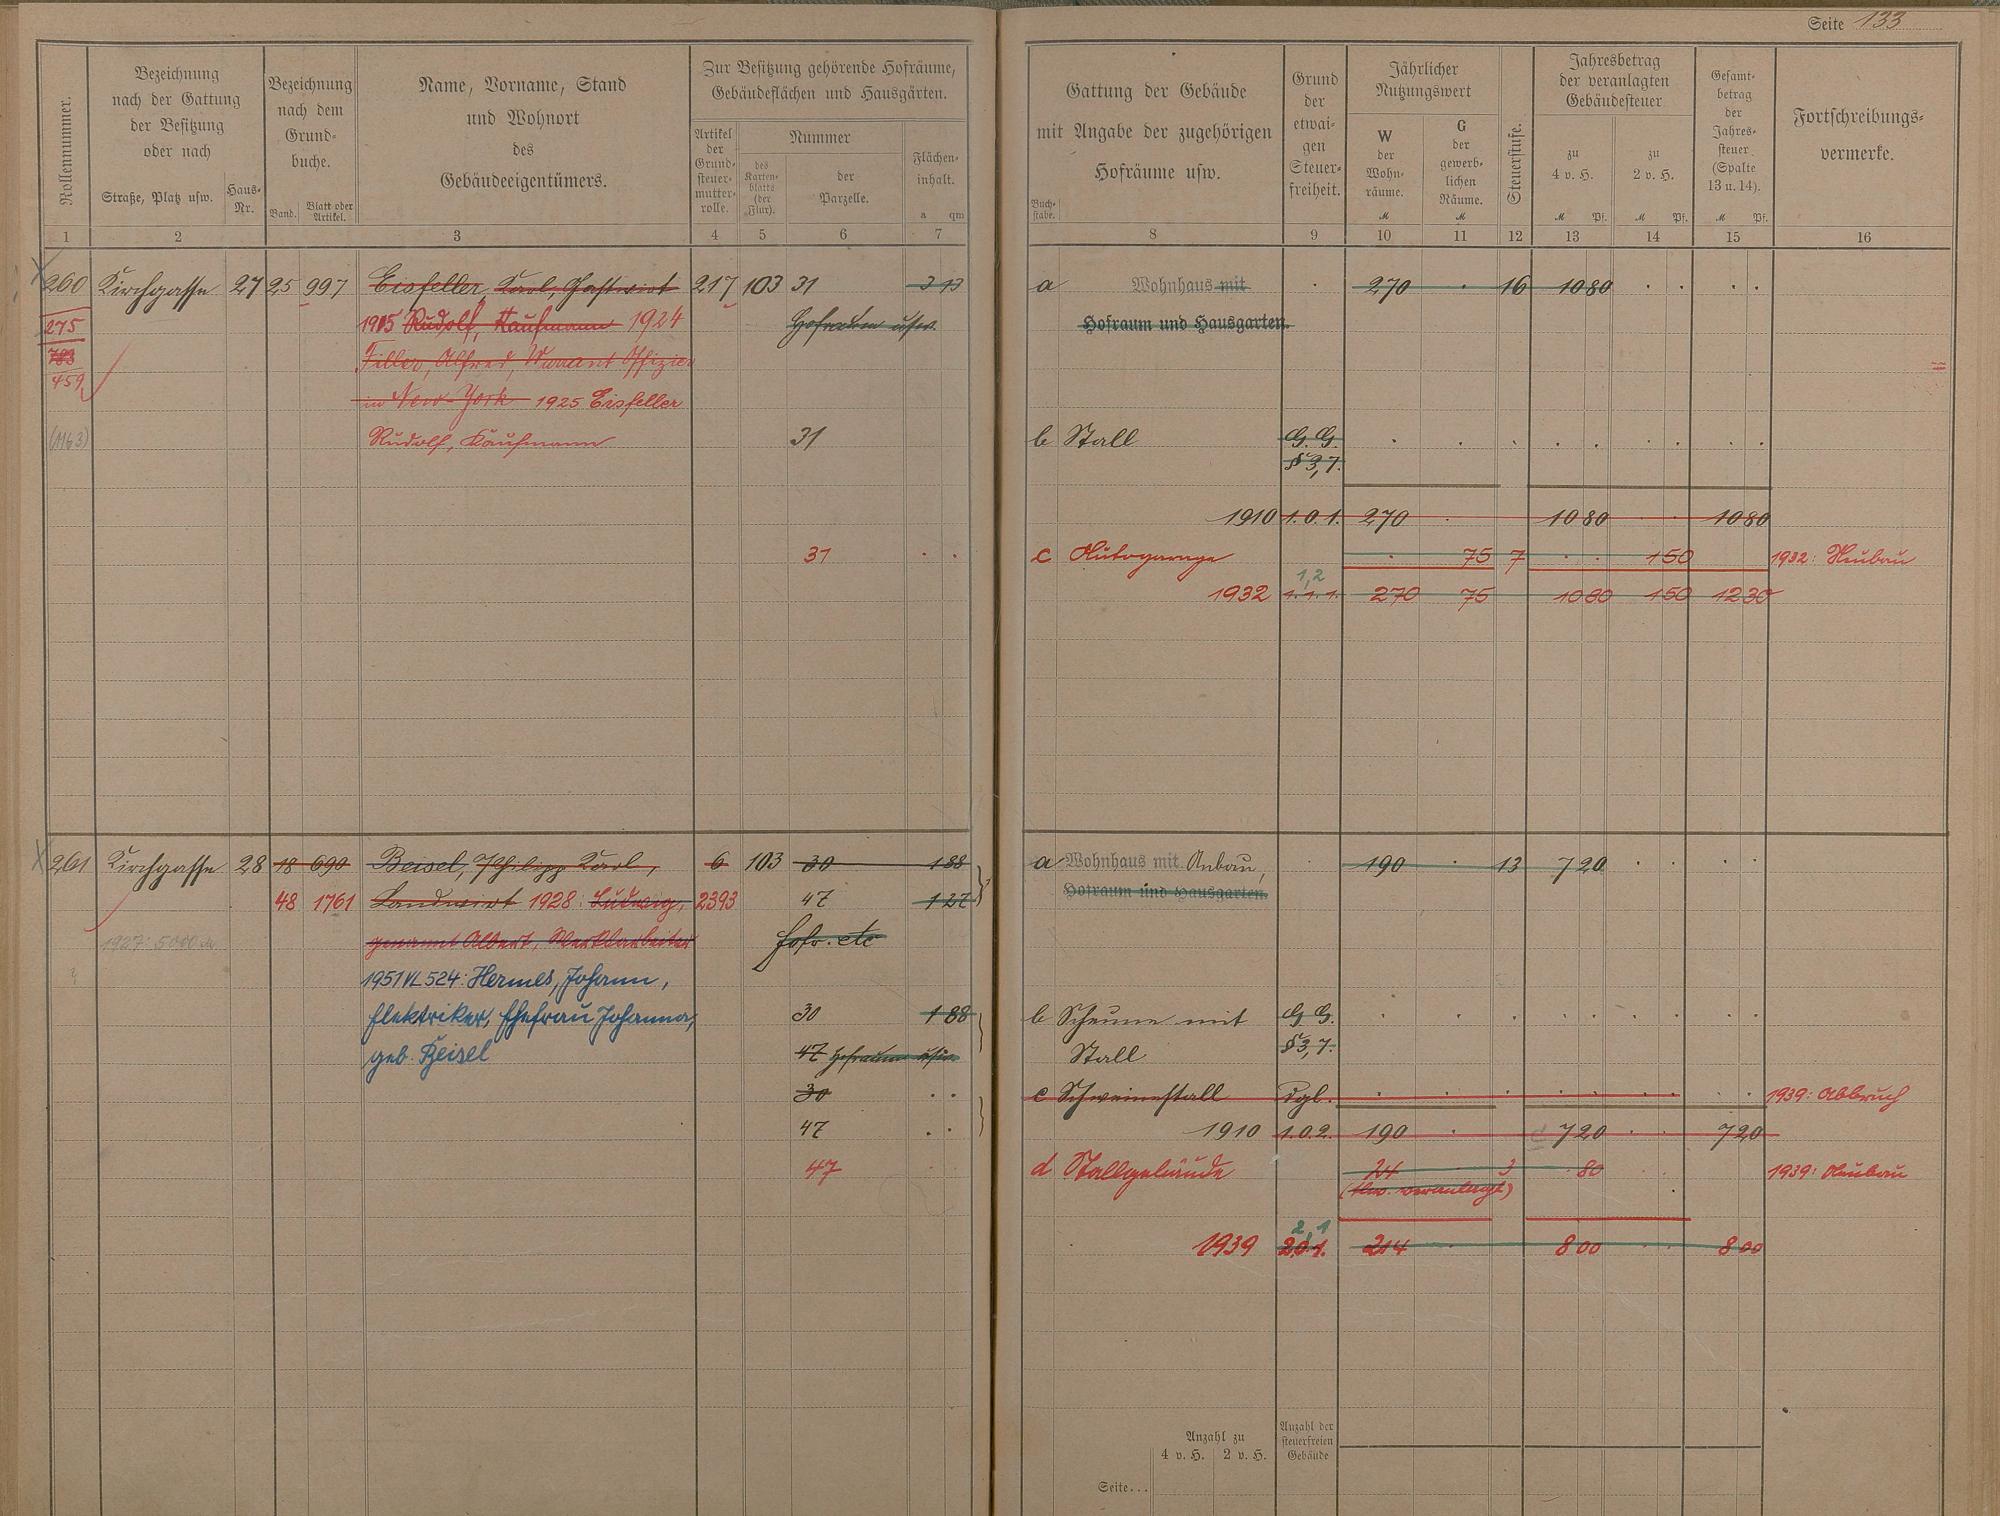 Seite 133
Rollennummer.
Bezeichnung
nach der Gattung
der Besitzung
oder nach
Straße, Platz usw.
Haus-
Nr.
Bezeichnung
nach dem
Grund-
buche.
Band.
Blatt oder
Artikel.
Name, Vorname, Stand
und Wohnort
des
Gebäudeeigentümers.
Zur Besitzung gehörende Hofräume,
Gebäudeflächen und Hausgärten.
Artikel
der
Grund-
steuer-
mutter-
rolle.
Nummer
des
Karten-
blatts
(der
Flur).
der
Parzelle.
Flächen-
inhalt.
a qm
1 2 3 4 5 6 7
260 Kirchgasse 27 25 997 Eisfeller, Karl, Gastwirt 217 103 31 3 13
275 1915 Rudolf, Kaufmann 1924 Hofraum usw.
783 Filler, Alfred, Warrant Offizier
459 in New-York 1925 Eisfeller
(1163) Rudolf, Kaufmann 31
31
261 Kirchgasse 28 18 690 Beisel, Philipp Karl, 6 103 30 1 88
48 1761 Landwirt 1928: Ludwig, 2393 47 1 27
1927: 5000 genannt Albert, Werkbarbeiter Hofr. etc
1951 VL 524: Hermes, Johann,
Elektriker, Ehefrau Johanna, 30 1 88
geb. Beisel 47 Hofraum usw.
30
47
47
Gattung der Gebäude
mit Angabe der zugehörigen
Hofräume usw.
Buch-
stabe.
Grund
der
etwai-
gen
Steuer-
freiheit.
Jährlicher
Nutzungswert
W
der
Wohn-
räume.
M
G
der
gewerb-
lichen
Räume.
M
Steuerstufe.
Jahresbetrag
der veranlagten
Gebäudesteuer
zu
4 v. H.
M Pf.
zu
2 v. H.
M Pf.
Gesamt-
betrag
der
Jahres-
steuer
(Spalte
13 u. 14).
M Pf.
Fortschreibungs-
vermerke.
8 9 10 11 12 13 14 15 16
a Wohnhaus mit 270 16 10 80
Hofraum und Hausgarten.
b Stall G. G.
§ 3,7.
1910 1. 0. 1. 270 10 80 10 80
c Autogarage 75 7 1 50 1932: Neubau
1,2
1932 1. 1. 1. 270 75 10 80 1 50 12 30
a Wohnhaus mit Anbau, 190 13 7 20
Hofraum und Hausgarten.
b Scheune mit G. G.
Stall § 3,7.
c Schweinestall Dgl. 1939: Abbruch
1910 1. 0. 2. 190 7 20 7 20
d Stallgebäude 24 3 80 1939: Neubau
2, 1
1939 2.0.1. 214 8 00 8 00
Anzahl zu
4 v. H. 2 v. H.
Anzahl der
steuerfreien
Gebäude
Seite...